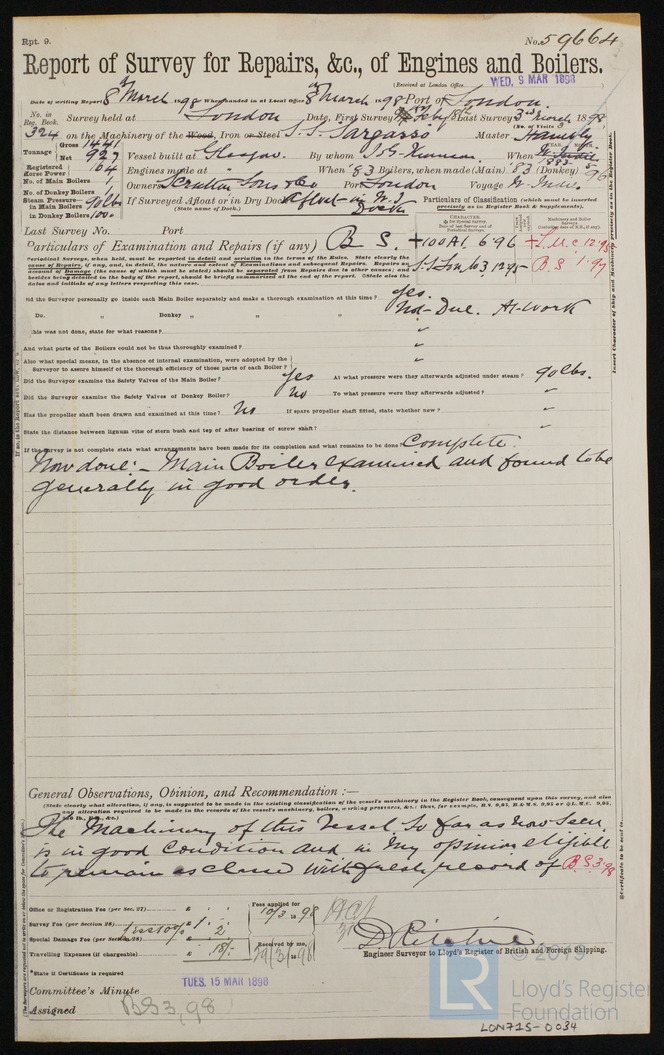 Rpt. 9.
No. 59664
Report of Survey for Repairs, &c., of Engines and Boilers.
(Received at London Office WED. 9 MAR 1898
Date of writing Report 8th March 1898 When handed in at Local Office 8th March 1898 Port of London.
No. in Reg. Book. Survey held at London Date, First Survey Feby 8th Last Survey 3rd March 1898
(No. of Visits 3
324 on the Machinery of the Wood, Iron or Steel S.S. Sargasso Master
Tonnage Gross 1441
Net 927 Vessel built at Glasgow. By whom When 1883-5
Registered Horse Power 164 Engines made at When '83 Boilers, when made (Main) '83 (Donkey) 96
No. of Main Boilers 1 Owners Scrutton Sons & Co Port London Voyage W. Indies
No. of Donkey Boilers 1
Steam Pressure in Main Boilers 90 lbs If Surveyed Afloat or in Dry Dock Afloat - in W. I. Docks
in Donkey Boilers 100
(State name of Dock.)
Particulars of Classification (which must be inserted precisely as in Register Book & Supplements).
Last Survey No. Port
CHARACTER.
Machinery and Boiler Surveys
Particulars of Examination and Repairs (if any) B. S. +100A1. 6 96 +L.M.C 12.95
S.S. Lon No3, 12.95 B.S 1.97
Periodical Surveys, when held, must be reported in detail and seriatim in the terms of the Rules. State clearly the
cause of Repairs, if any, and, in detail, the nature and extent of Examinations and subsequent Repairs. Repairs on
account of Damage (the cause of which must be stated) should be separated from Repairs due to other causes; and
besides being detailed in the body of the report, should be briefly summarized at the end of the report. (State also the
dates and initials of any letters respecting this case.
Did the Surveyor personally go inside each Main Boiler separately and make a thorough examination at this time? Yes.
Do. " Donkey " " " Not Due. At Work
If this was not done, state for what reasons?
And what parts of the Boilers could not be thus thoroughly examined?
Also what special means, in the absence of internal examination, were adopted by the
Surveyor to assure himself of the thorough efficiency of those parts of each Boiler?
Did the Surveyor examine the Safety Valves of the Main Boiler? Yes At what pressure were they afterwards adjusted under steam? 90 lbs.
Did the Surveyor examine the Safety Valves of Donkey Boiler? No To what pressure were they afterwards adjusted?
Has the propeller shaft been drawn and examined at this time? No If spare propeller shaft fitted, state whether new?
State the distance between lignum vitæ of stern bush and top of after bearing of screw shaft?
If the survey is not complete state what arrangements have been made for its completion and what remains to be done Complete.
Now done:- Main Boiler examined and found to be
generally in good order.
General Observations, Opinion, and Recommendation :—
(State clearly what alteration, if any, is suggested to be made in the existing classification of the vessel's machinery in the Register Book, consequent upon this survey, and also
any alteration required to be made in the records of the vessel's machinery, boilers, working pressures, &c.: thus, for example, B.S. 9,95, B.&M.S. 9,95 or L.M.C. 9,95,
The Machinery of this Vessel so far as now seen
is in good condition and in my opinion eligible
to remain as classed with fresh record of B.S. 3.98
Office or Registration Fee (per Sec. 27) £ : :
Fees applied for
10/3 1898
Survey Fee (per Section 28) £ 1 : 2
less 10%
Special Damage Fee (per Section 28) £ :
Received by me,
Travelling Expenses (if chargeable) £ : 18/-
D. Ritchie
Engineer Surveyor to Lloyd's Register of British and Foreign Shipping.
*State if Certificate is required
Committee's Minute TUES. 15 MAR 1898
Assigned BS 3,98
LR
© 2019
Lloyd's Register
Foundation
LON715-0034